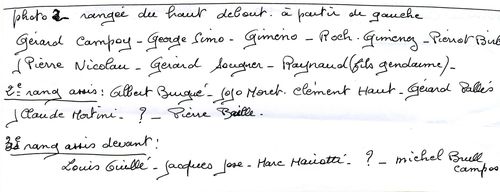 photo 2 rangée du haut debout. à partir de gauche
Gérard Campoy - George Simo - Gimeno - Roch. Gimenez - Pierrot
Pierre Nicolau - Gérard Sougner - Raynaud (fils gendarme) -
2e rang assis : Albert Burgué - Jojo Moret. Clément Haut - Gérard Pallés
Claude Martini - ? - Pierre Baille.
3e rang assis devant :
Louis Guillé - Jacques Jose - Marc Mariotti - ? - michel Brull
campos